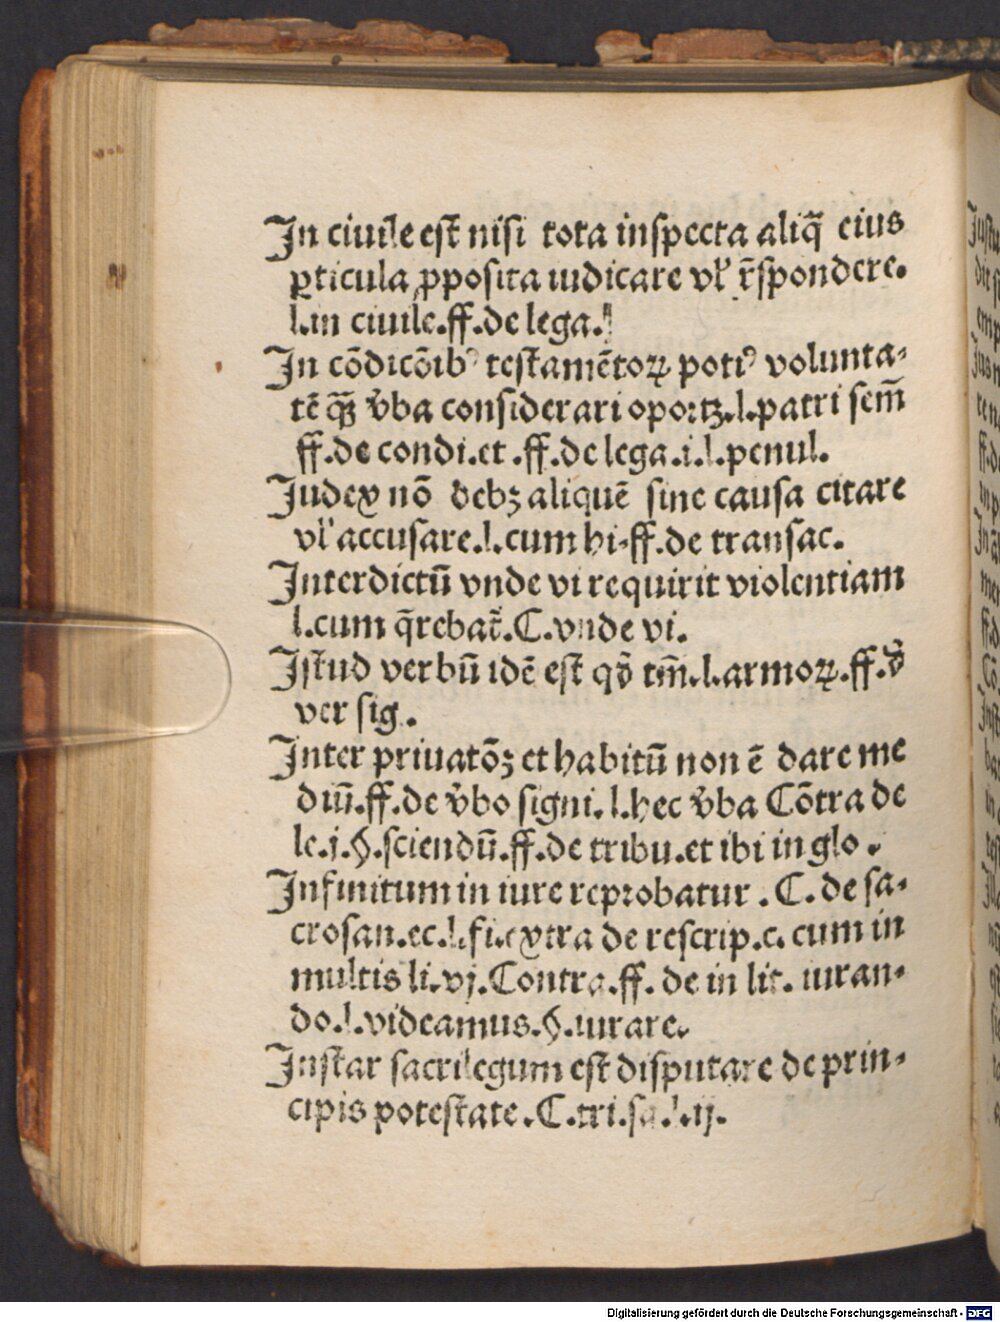 In ciuile est nisi tota inspecta aliq̄ eius
ꝑticula ꝓposita iudicare vl' r̄spondere.
l.in ciuile.ff.de lega.
In cōdicōib⁹ testamētoꝝ poti⁹ volunta⸗
tē q̄ꝫ v̄ba considerari oportꝫ.l.patri sem̄
ff.de condi.et .ff.de lega.i.l.penul.
Judex nō debꝫ aliquē sine causa citare
vl' accusare.l.cum hi.ff.de transac.
Interdictū vnde vi requirit violentiam
l.cum q̄rebat̄.C.vnde vi.
Istud verbū idē est qd̄ tm̄.l.armoꝝ.ff.d̄
ver sig.
Inter priuatōꝫ et habitū non ē dare me
diū.ff.de v̄bo signi.l.hec v̄ba Cōtra de
le.j.§.sciendū.ff.de tribu.et ibi in glo.
Infinitum in iure reprobatur .C. de sa⸗
crosan.ec.l.fi.extra de rescrip.c. cum in
multis li.vj.Contra.ff. de in lit. iuran⸗
do.l.videamus.§.iurare.
Instar sacrilegum est disputare de prin⸗
cipis potestate.C.cri.sa.l.ij.
Digitalisierung gefördert durch die Deutsche Forschungsgemeinschaft - DFG